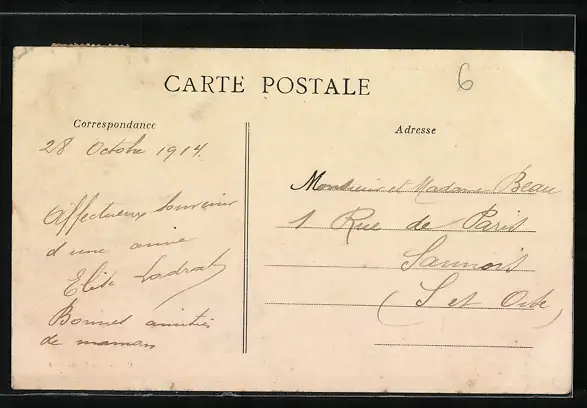 6
CARTE POSTALE
Correspondance
28 Octobre 1914.
Affectueux souvenir
d'une amie
Elise Ladrat
Bonnes amitiés
de maman
Adresse
Monsieur et Madame Beau
1 Rue de Paris
Sannois
(S et Oise)